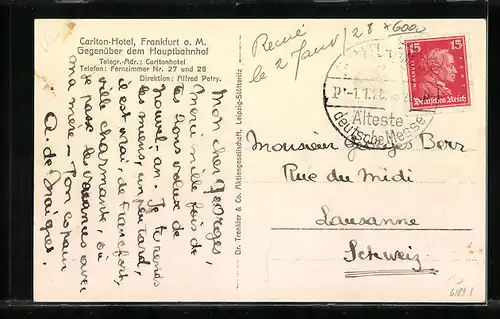 Carlton-Hotel, Frankfurt a. M.
Gegenüber dem Hauptbahnhof
Telegr.-Adr.: Carltonhotel
Telefon: Fernzimmer Nr. 27 und 28
Direktion: Alfred Petry.
Mon cher Georges,
Merci mille fois de
tes bons voeux de
nouvel-an. Je te rends
les miens, un peu tard,
il est vrai, de Francfort,
ville charmante, où
je passe les vacances avec
ma mère - Ton copain
A. de
Dr. Trenkler & Co. Aktiengesellschaft, Leipzig-Stötteritz
le 2 Janv/28
Älteste
deutsche Messe
15 15
Deutsches Reich
Monsieur Georges
Rue du Midi
Lausanne
Schweiz